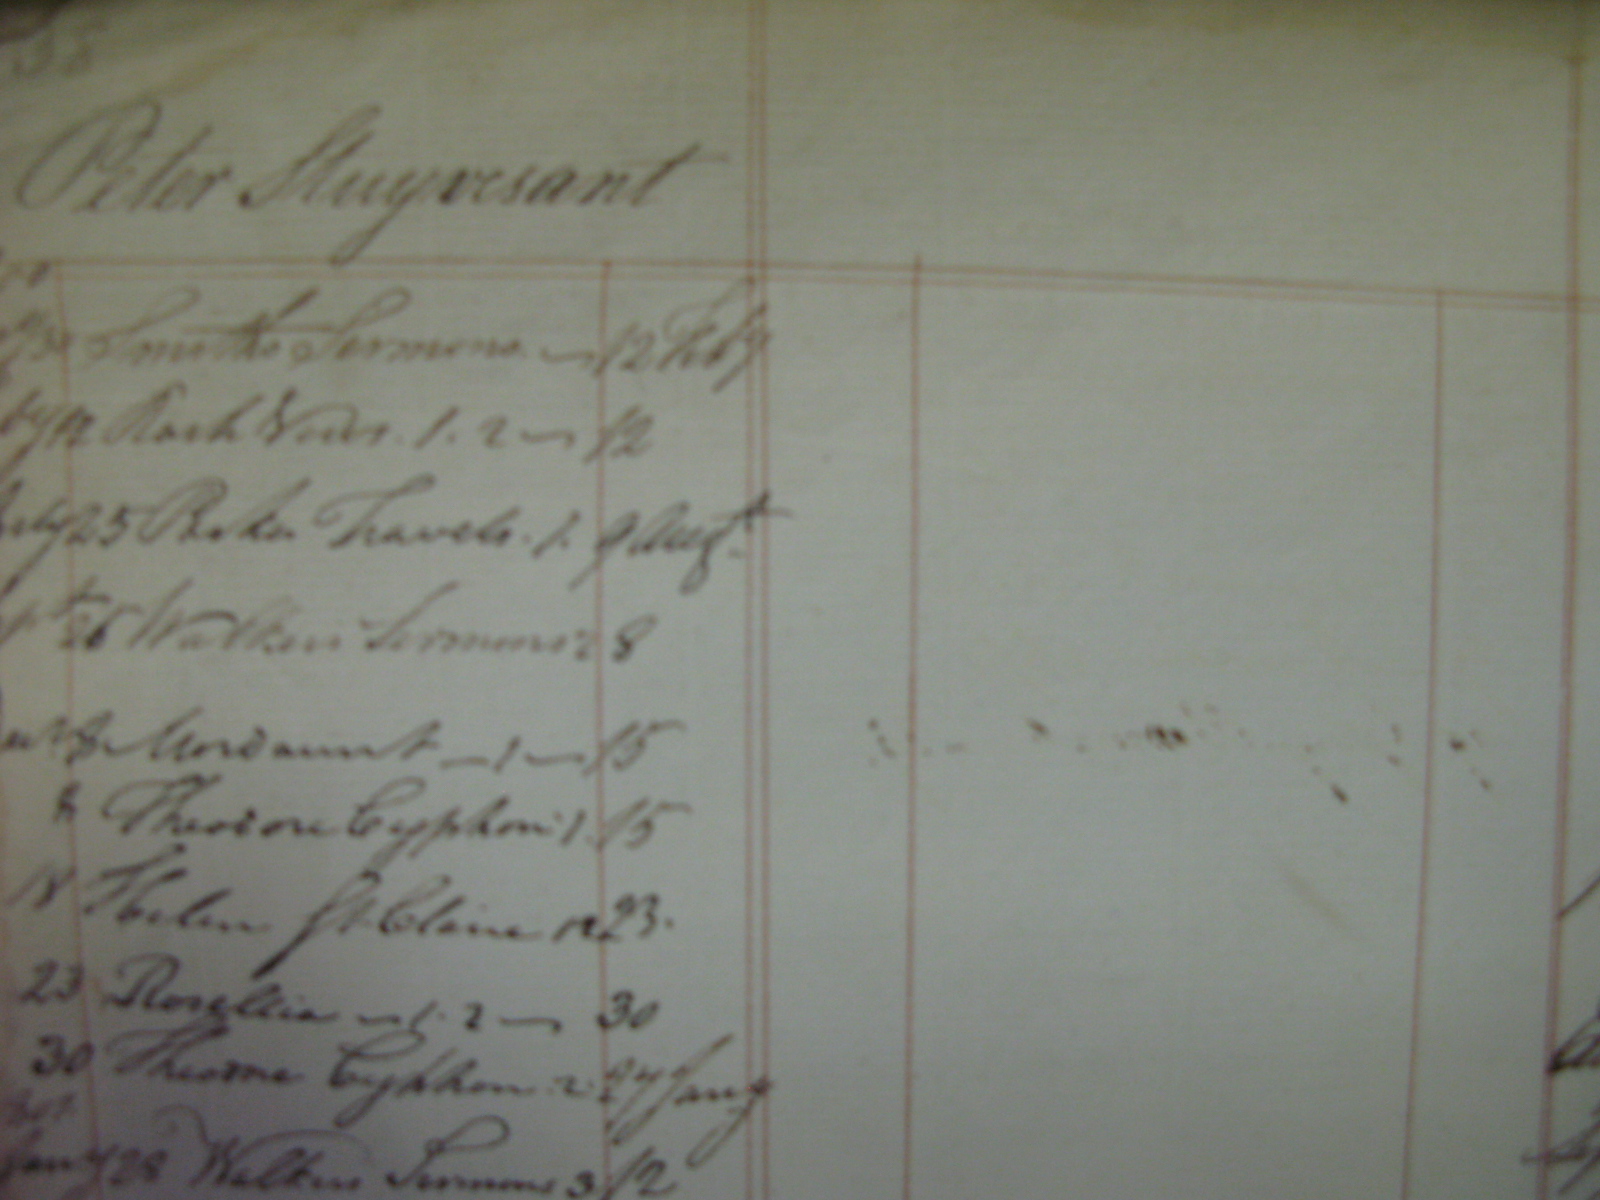 Peter Stuyvesant
Smiths Sermons. 12 Feby
12 Views. 1. 2 12
July 25 Travels. 1. 9 Augt
26 Walkers Sermons 2 8
8 Mordaunt 1 15
8 Theodore Cyphon 1 15
18 Helen St Claire 12 23.
23 Rosellia 1. 2 30
30 Theodore Cyphon 2 27 Jany
Jany 28 Walkers Sermons 3 12